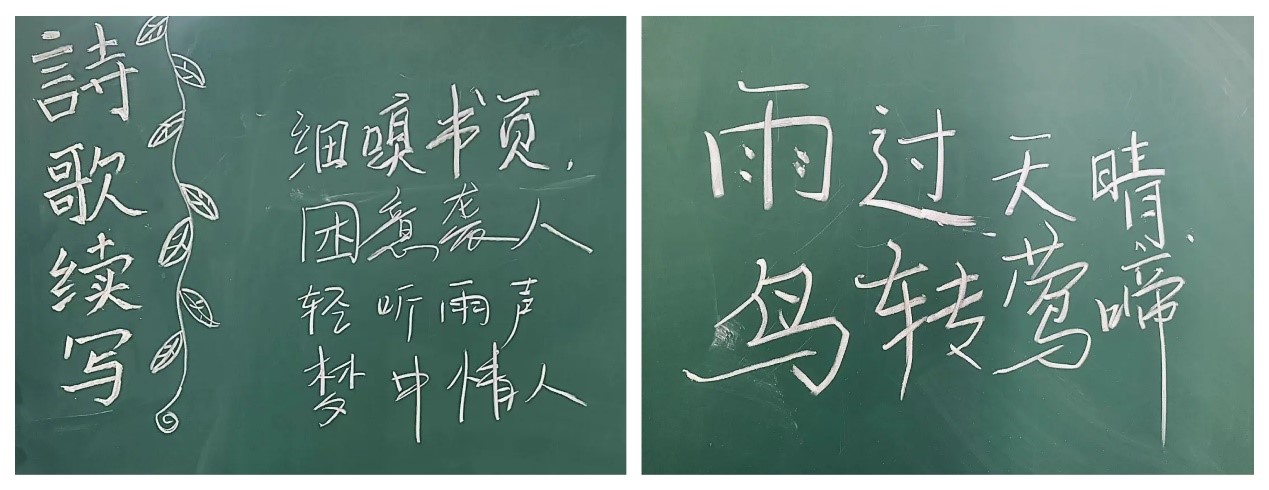 詩歌续写
细嗅书页，
困意袭人
轻听雨声
梦中情人
雨过天晴.
鸟转莺啼